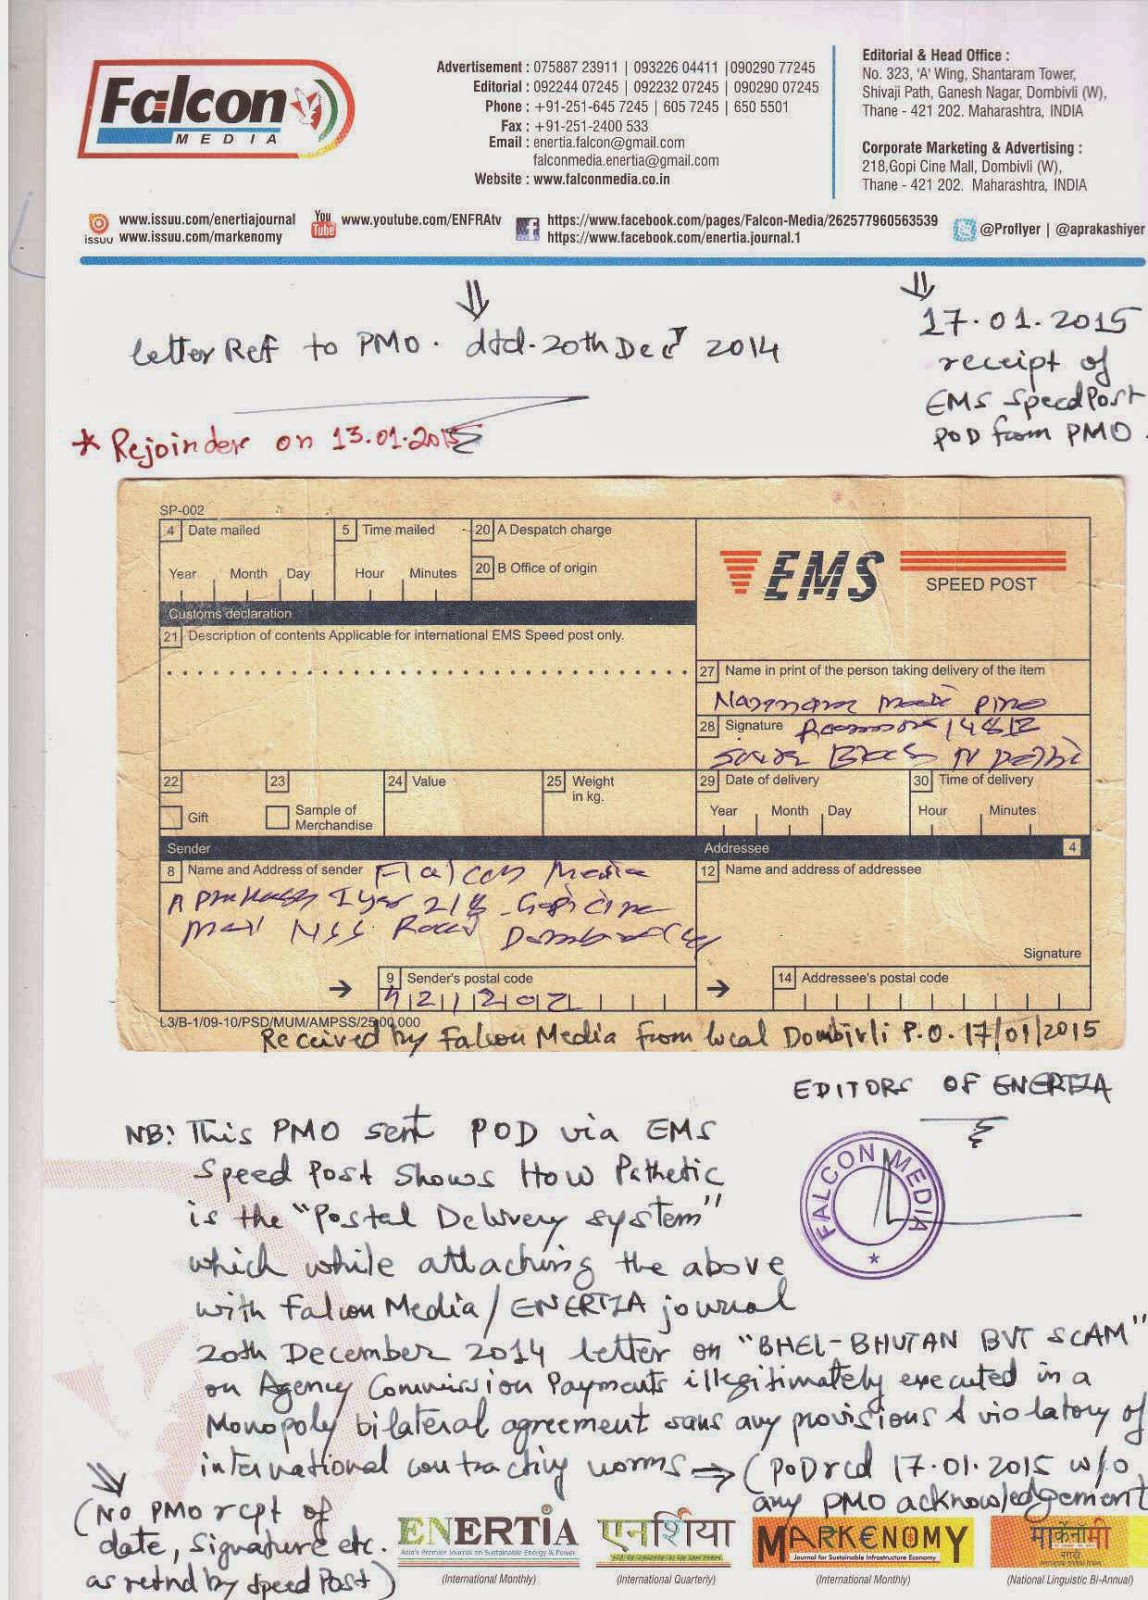 Falcon
MEDIA
Advertisement : 075887 23911 | 093226 04411 |090290 77245
Editorial : 092244 07245 | 092232 07245 | 090290 07245
Phone : +91-251-645 7245 | 605 7245 | 650 5501
Fax : +91-251-2400 533
Email : enertia.falcon@gmail.com
falconmedia.enertia@gmail.com
Website : www.falconmedia.co.in
Editorial & Head Office :
No. 323, 'A' Wing, Shantaram Tower,
Shivaji Path, Ganesh Nagar, Dombivli (W),
Thane - 421 202. Maharashtra, INDIA
Corporate Marketing & Advertising :
218,Gopi Cine Mall, Dombivli (W),
Thane - 421 202. Maharashtra, INDIA
issuu
www.issuu.com/enertiajournal
www.issuu.com/markenomy
You Tube
www.youtube.com/ENFRAtv
https://www.facebook.com/pages/Falcon-Media/262577960563539
https://www.facebook.com/enertia.journal.1
@Proflyer | @aprakashiyer
letter Ref to PMO. dtd. 20th Dec 2014
17.01.2015
receipt of
EMS SpeedPost
POD from PMO.
* Rejoinder on 13.01.2015
SP-002
4 Date mailed
Year Month Day
5 Time mailed
Hour Minutes
20 A Despatch charge
20 B Office of origin
EMS SPEED POST
Customs declaration
21 Description of contents Applicable for international EMS Speed post only.
27 Name in print of the person taking delivery of the item
Narendra Modi PMO
28 Signature Room no 148 B
South Block N Delhi
22 Gift
23 Sample of Merchandise
24 Value
25 Weight in kg.
29 Date of delivery
Year Month Day
30 Time of delivery
Hour Minutes
Sender
Addressee 4
8 Name and Address of sender Falcon Media
A Prakash Iyer 218 Gopi Cine
Mall NSS Road Dombivli (W)
12 Name and address of addressee
Signature
9 Sender's postal code
421202
14 Addressee's postal code
L3/B-1/09-10/PSD/MUM/AMPSS/25,00,000
Received by Falcon Media from local Dombivli P.O. 17/01/2015
EDITORS OF ENERTIA
FALCON MEDIA
NB: This PMO sent POD via EMS
Speed Post Shows How Pathetic
is the "Postal Delivery system"
which while attaching the above
with Falcon Media/ENERTIA journal
20th December 2014 letter on "BHEL-BHUTAN BVT SCAM"
on Agency Commission Payments illegitimately executed in a
Monopoly bilateral agreement sans any provisions & violatory of
international contracting norms → (POD rcd 17.01.2015 w/o
any PMO acknowledgement
(No PMO rcpt of
date, signature etc.
as retnd by Speed Post)
ENERTIA
Asia's Premier Journal on Sustainable Energy & Power
(International Monthly)
एनर्शिया
(International Quarterly)
MARKENOMY
Journal for Sustainable Infrastructure Economy
(International Monthly)
मार्केनॉमी
(National Linguistic Bi-Annual)